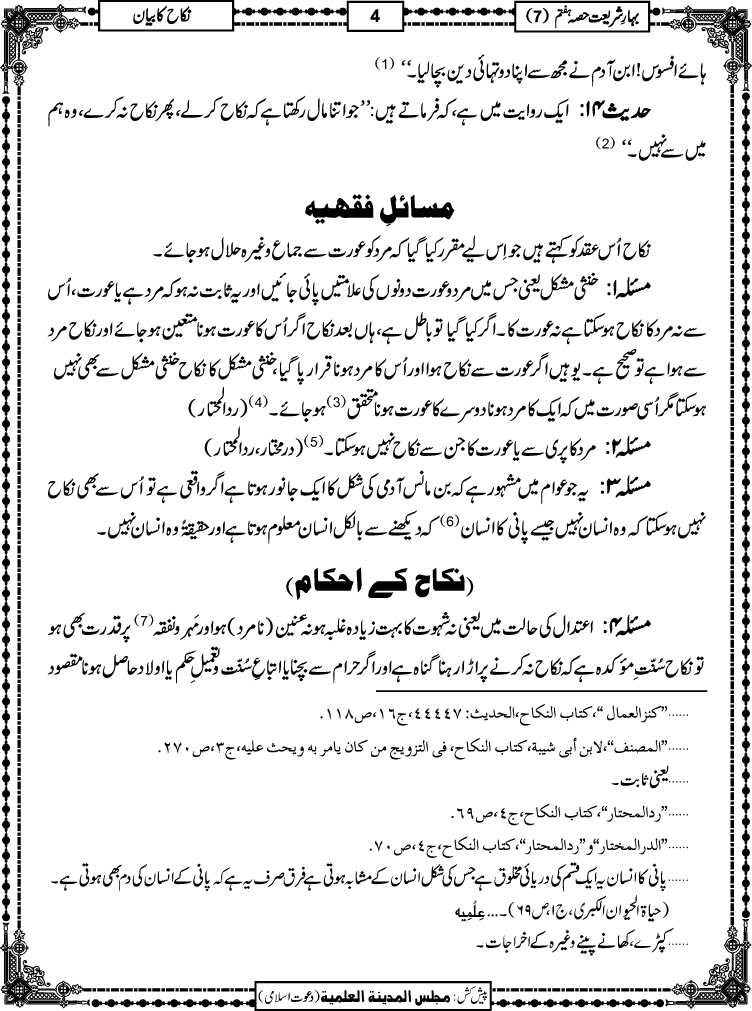 بہارِ شریعت حصہ ہفتم (7)
4
نکاح کا بیان
ہائے افسوس! ابن آدم نے مجھ سے اپنا دو تہائی دین بچا لیا۔‘‘ (1)
حدیث ۱۴: ایک روایت میں ہے، کہ فرماتے ہیں: ’’جو اتنا مال رکھتا ہے کہ نکاح کرلے، پھر نکاح نہ کرے، وہ ہم
میں سے نہیں۔‘‘ (2)
مسائلِ فقهیه
نکاح اُس عقد کو کہتے ہیں جو اِس لیے مقرر کیا گیا کہ مرد کو عورت سے جماع وغیرہ حلال ہو جائے۔
مسئلہ ۱: خنثی مشکل یعنی جس میں مرد و عورت دونوں کی علامتیں پائی جائیں اور یہ ثابت نہ ہو کہ مرد ہے یا عورت، اُس
سے نہ مرد کا نکاح ہو سکتا ہے نہ عورت کا۔ اگر کیا گیا تو باطل ہے، ہاں بعد نکاح اگر اُس کا عورت ہونا متعین ہو جائے اور نکاح مرد
سے ہوا ہے تو صحیح ہے۔ یوہیں اگر عورت سے نکاح ہوا اور اُس کا مرد ہونا قرار پا گیا، خنثی مشکل کا نکاح خنثی مشکل سے بھی نہیں
ہو سکتا مگر اُسی صورت میں کہ ایک کا مرد ہونا دوسرے کا عورت ہونا متحقق (3) ہو جائے۔ (4) (ردالمحتار)
مسئلہ ۲: مرد کا پری سے یا عورت کا جن سے نکاح نہیں ہو سکتا۔ (5) (درمختار، ردالمحتار)
مسئلہ ۳: یہ جو عوام میں مشہور ہے کہ بن مانس آدمی کی شکل کا ایک جانور ہوتا ہے اگر واقعی ہے تو اُس سے بھی نکاح
نہیں ہو سکتا کہ وہ انسان نہیں جیسے پانی کا انسان (6) کہ دیکھنے سے بالکل انسان معلوم ہوتا ہے اور حقیقۃً وہ انسان نہیں۔
(نکاح کے احکام)
مسئلہ ۴: اعتدال کی حالت میں یعنی نہ شہوت کا بہت زیادہ غلبہ ہو نہ عنین (نامرد) ہو اور مَہر و نفقہ (7) پر قدرت بھی ہو
تو نکاح سُنّتِ مؤکدہ ہے کہ نکاح نہ کرنے پر اڑا رہنا گناہ ہے اور اگر حرام سے بچنا یا اتباعِ سُنّت و تعمیلِ حکم یا اولاد حاصل ہونا مقصود
......”كنزالعمال“، كتاب النكاح، الحديث: ٤٤٤٤٧، ج١٦، ص١١٨.
......”المصنف“، لابن أبى شيبة، كتاب النكاح، فى التزويج من كان يامر به ويحث عليه، ج٣، ص٢٧٠.
......یعنی ثابت۔
......”ردالمحتار“، كتاب النكاح، ج٤، ص٦٩.
......”الدرالمختار“و”ردالمحتار“، كتاب النكاح، ج٤، ص٧٠.
......پانی کا انسان یہ ایک قسم کی دریائی مخلوق ہے جس کی شکل انسان کے مشابہ ہوتی ہے فرق صرف یہ ہے کہ پانی کے انسان کی دم بھی ہوتی ہے۔
(حیاۃ الحیوان الکبری، ج۱، ص۶۹)۔...عِلْمِیه
......کپڑے، کھانے پینے وغیرہ کے اخراجات۔
پیش کش: مجلس المدينة العلمية (دعوتِ اسلامی)